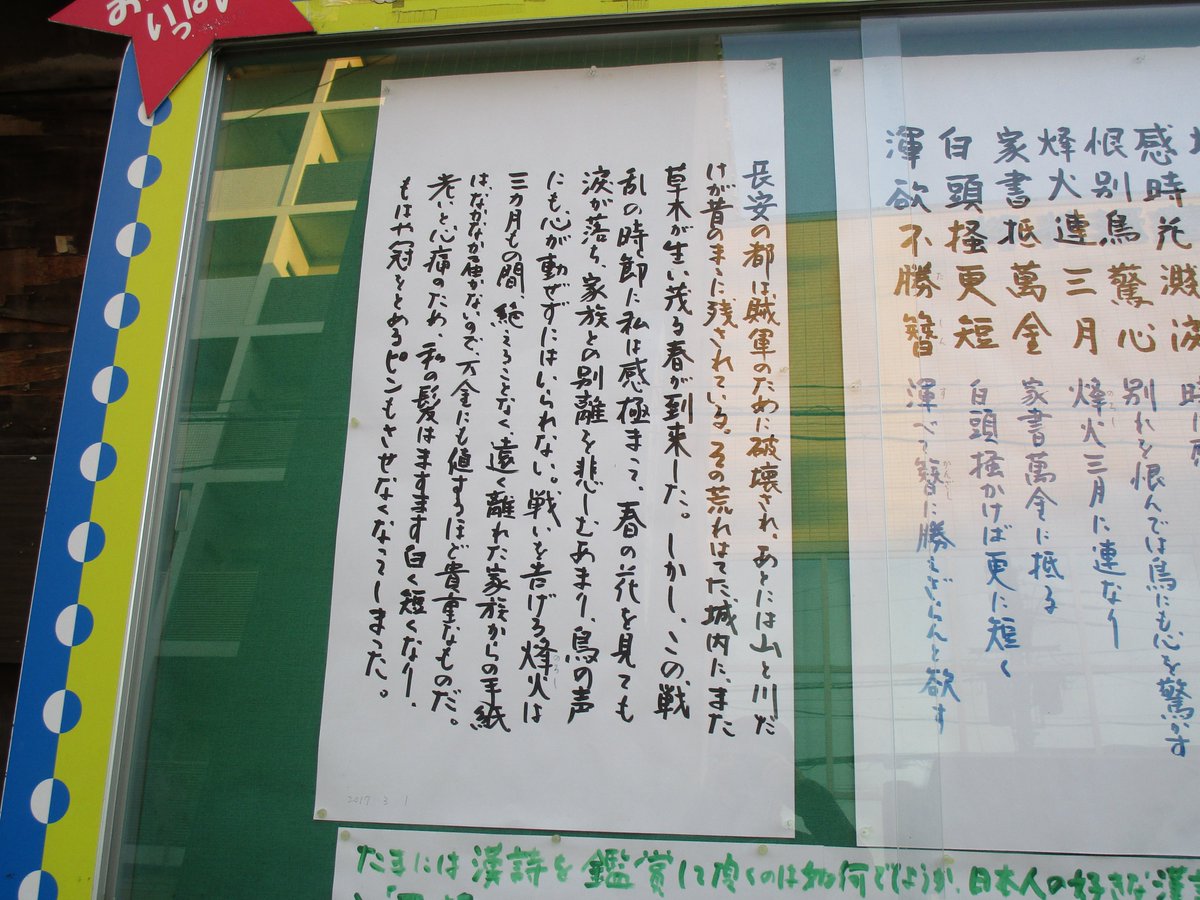 いっぱい
感時花濺涙
恨別鳥驚心
別れを恨んでは鳥にも心を驚かす
烽火連三月
烽火三月に連なり
のろし
家書抵萬金
家書萬金に抵る
白頭搔更短
白頭搔かけば更に短く
渾欲不勝簪
たん
しん
渾べて簪に勝えざらんと欲す
す
かんざし
長安の都は賊軍のために破壊され、あとには山と川だ
けが昔のままに残されている。その荒れはてた城内に、また
草木が生い茂る春が到来した。しかし、この、戦
乱の時を卸に私は感極まって、春の花を見ても
涙が落ち、家族との別離を悲しむあまり、鳥の声
にも、心が動ぜずにはいられない。戦いを告げる烽火は
のろし
三カ月もの間、絶えることなく、遠く離れた家族からの手紙
は、なかなか届かないので、万金にも値するほど貴重なものだ。
老いと心痛のため、私の髪はますます白く短くなり、
もはや冠をとめるピンもさせなくなってしまった。
2017 3 1
たまには漢詩を鑑賞して頂くのは如何でしょうか、日本人の好きな漢詩